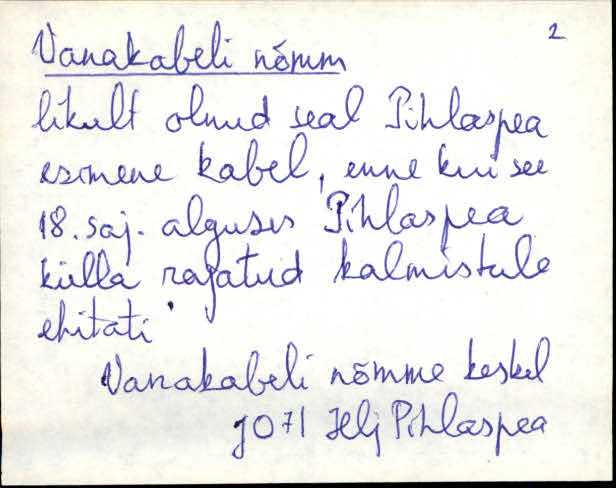 2
Vanakabeli nõmm
likult olnud seal Pihlaspea
esimene kabel, enne kui see
18. saj. alguses Pihlaspea
külla rajatud kalmistule
ehitati.
Vanakabeli nõmme keskel
JO71 Hlj Pihlaspea